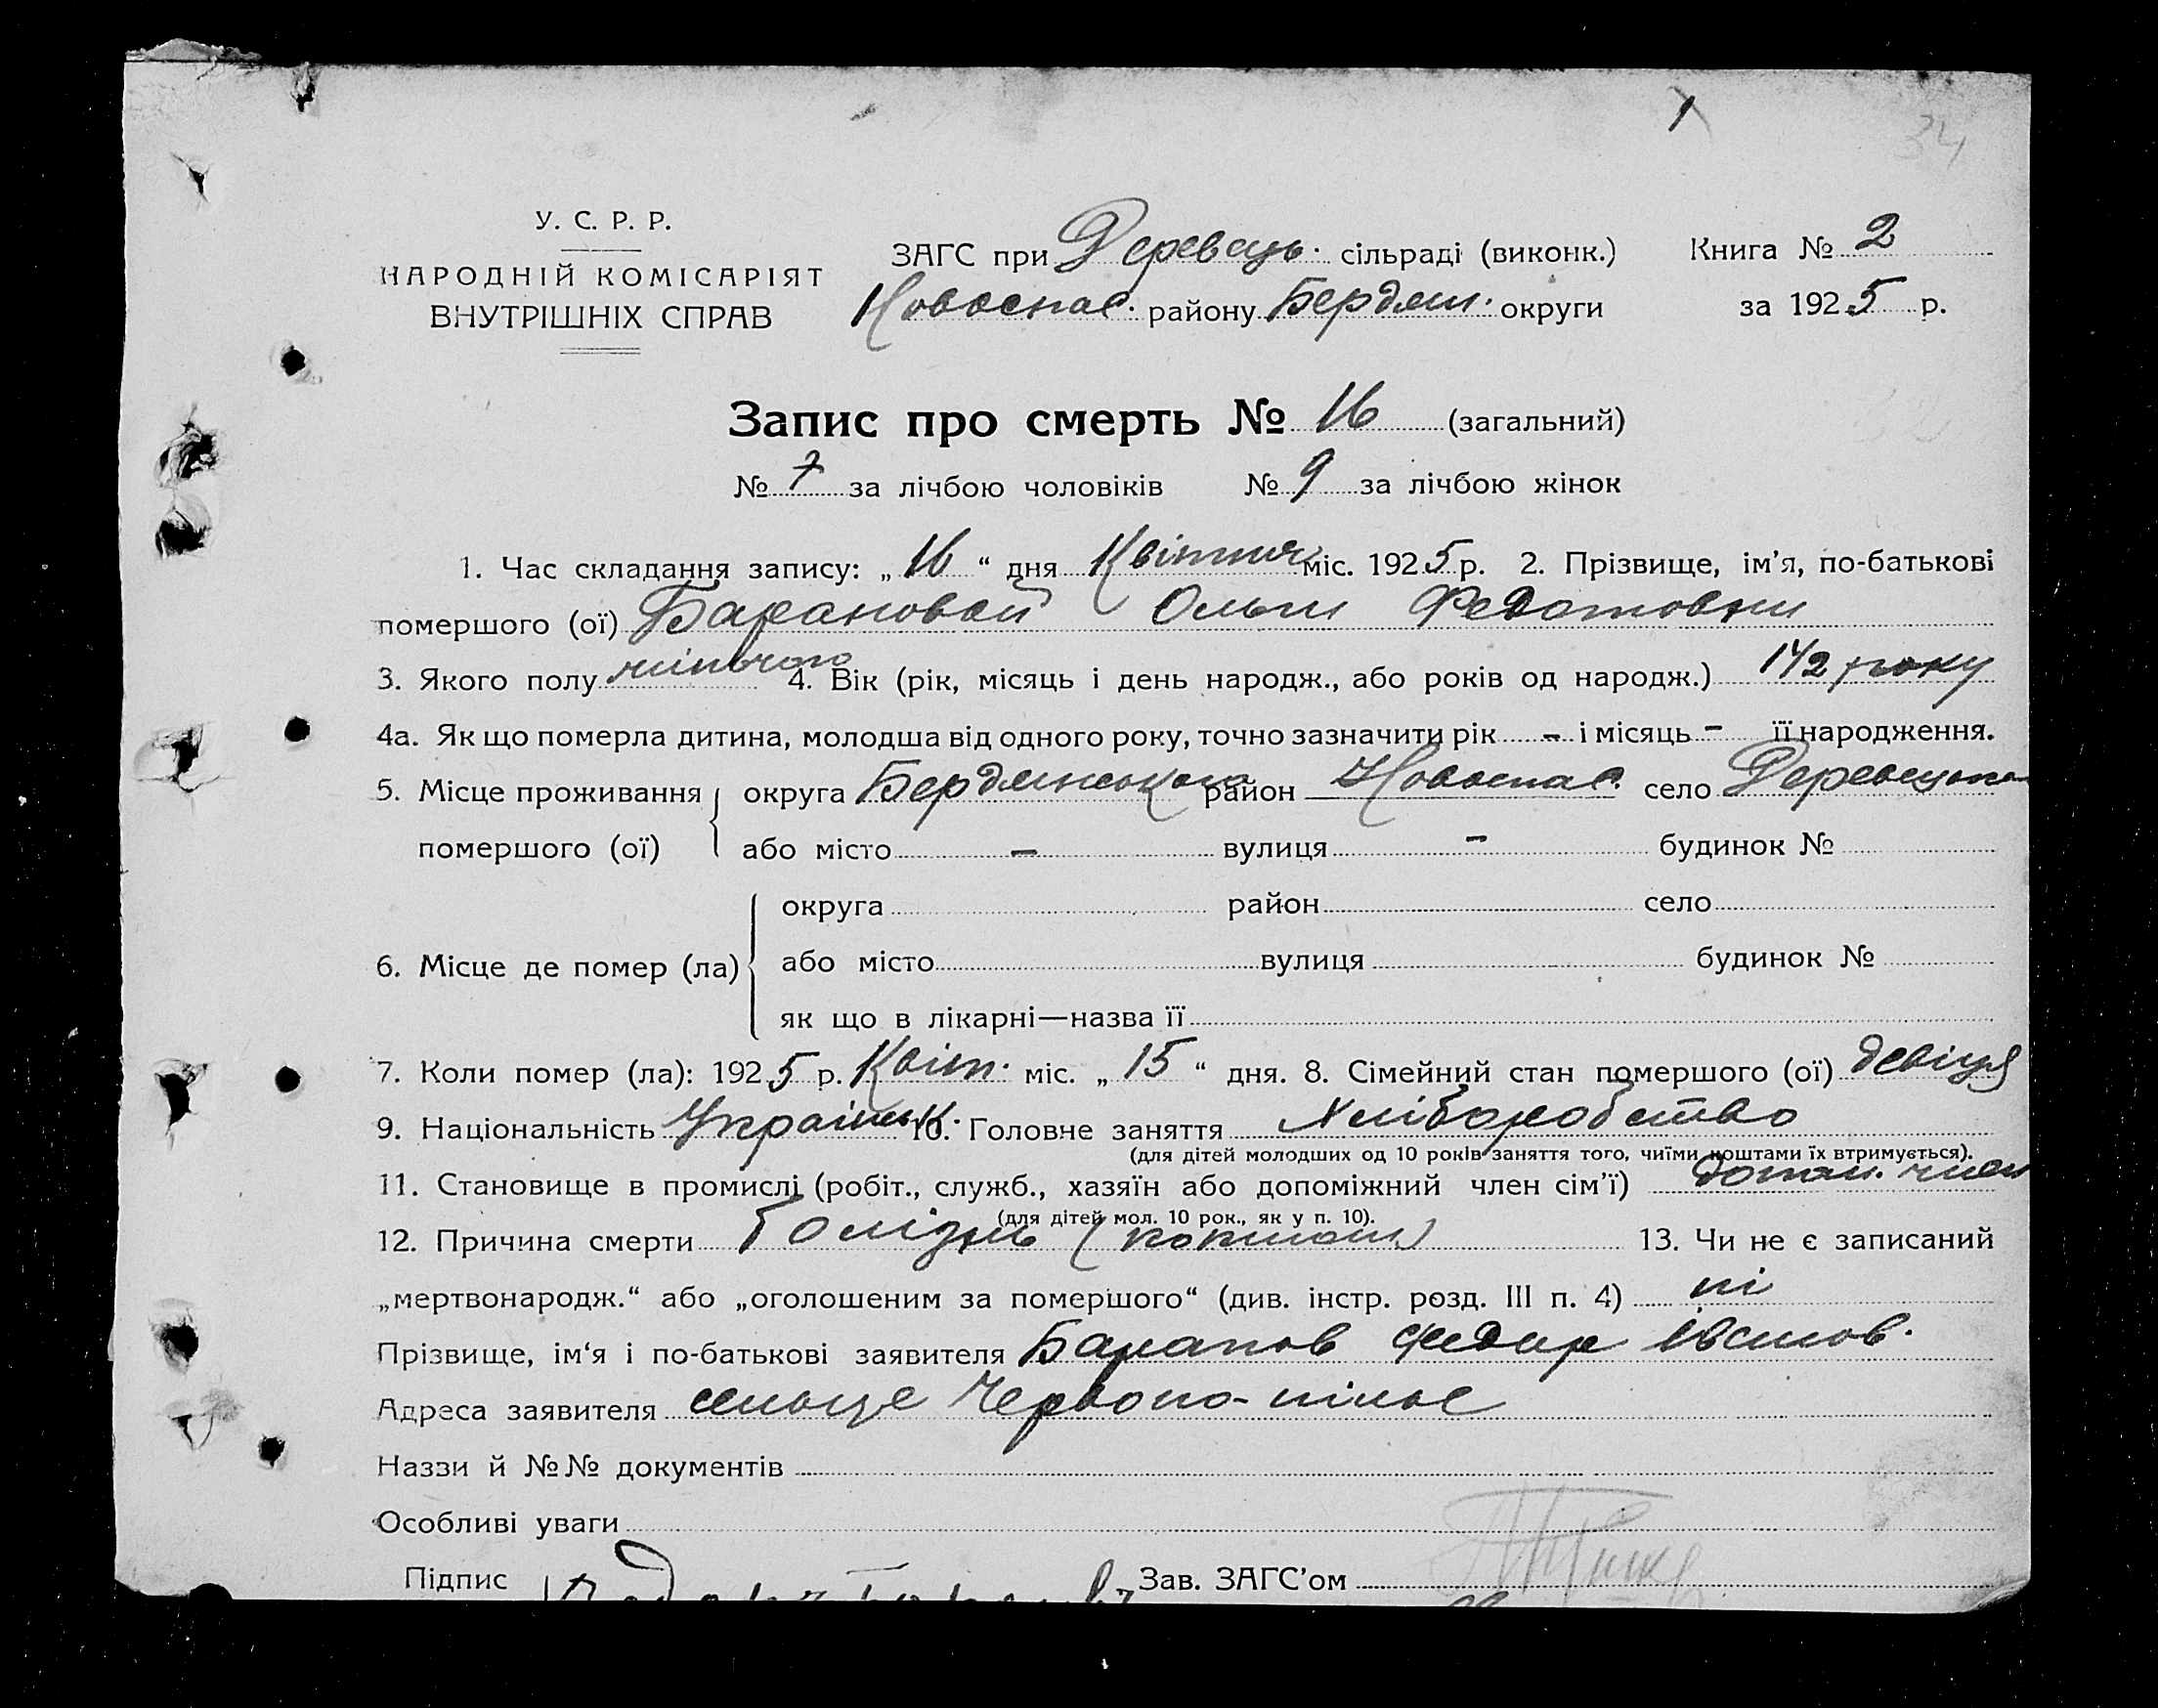 34
У. С. Р. Р.
НАРОДНІЙ КОМІСАРІЯТ
ВНУТРІШНІХ СПРАВ
ЗАГС при Деревець. сільраді (виконк.) Книга № 2
Новоспас. району Бердян. округи за 1925 р.
Запис про смерть № 16 (загальний)
№ 7 за лічбою чоловіків № 9 за лічбою жінок
1. Час складання запису: „16“ дня Квітня міс. 1925 р. 2. Прізвище, ім’я, по-батькові
помершого (ої) Барановой Ольги Федотовни
3. Якого полу жіночого 4. Вік (рік, місяць і день народж., або років од народж.) 1 1/2 року
4а. Як що померла дитина, молодша від одного року, точно зазначити рік - і місяць - її народження.
5. Місце проживання округа Бердянського район Новоспас. село
помершого (ої) або місто - вулиця - будинок №
округа район село
6. Місце де помер (ла) або місто вулиця будинок №
як що в лікарні—назва її
7. Коли помер (ла): 1925 р. Квіт. міс. „15“ дня. 8. Сімейний стан помершого (ої) девіця
9. Національність Україньк. 10. Головне заняття Хліборобство
(для дітей молодших од 10 років заняття того, чиїми коштами їх втримується).
11. Становище в промислі (робіт., служб., хазяїн або допоміжний член сім’ї) допом. член
(для дітей мол. 10 рок., як у п. 10).
12. Причина смерти болізнь 13. Чи не є записаний
„мертвонародж.“ або „оголошеним за помершого“ (див. інстр. розд. III п. 4) ні
Прізвище, ім‘я і по-батькові заявителя Баранов Федир
Адреса заявителя сельце Червоно-пільє
Назви й №№ документів
Особливі уваги
Підпис Зав. ЗАГС’ом